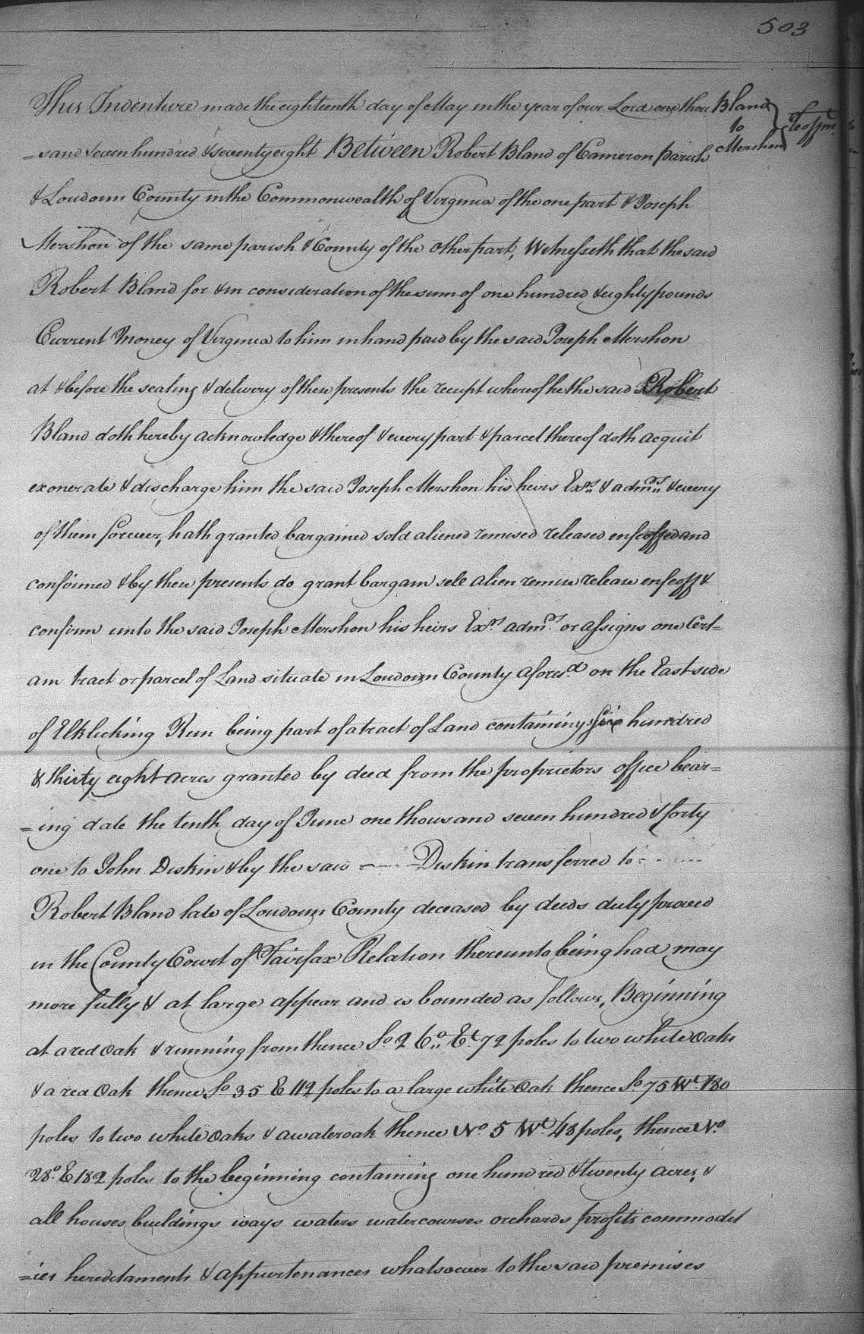 503
This Indenture made the eighteenth day of May in the year of our Lord one thou
=sand seven hundred & seventy eight Between Robert Bland of Cameron parish
Bland
to
Mershon
& Loudoun County in the Commonwealth of Virginia of the one part & Joseph
Mershon of the same parish & County of the other part, Witnesseth that the said
Robert Bland for & in consideration of the sum of one hundred & eighty pounds
Current Money of Virginia to him in hand paid by the said Joseph Mershon
at & before the sealing & delivery of these presents the receipt whereof he the said Robert
Bland doth hereby acknowledge & thereof & every part & parcel thereof doth acquit
exonerate & discharge him the said Joseph Mershon his heirs Exrs & admrs & every
of them forever, hath granted bargained sold aliened remised released enfeoffed and
confirmed & by these presents do grant bargain sell alien remise release enfeoff &
confirm unto the said Joseph Mershon his heirs Exrs admrs or assigns one Cert-
ain tract or parcel of Land situate in Loudoun County aforesd on the East side
of Elklicking Run being part of a tract of Land containing six hundred
& thirty eight acres granted by deed from the proprietors office bear=
=ing date the tenth day of June one thousand seven hundred & forty
one to John Diskin & by the said Diskin transferred to
Robert Bland late of Loudoun County deceased by deeds duly proved
in the County Court of Fairfax Relation thereunto being had may
more fully & at large appear and is bounded as follows, Beginning
at a red oak & running from thence So 26o Et 72 poles to two white oaks
& a red Oak thence So 35 E 112 poles to a large white Oak thence So 75 Wt 180
poles to two white Oaks & a water oak thence No 5 Wt 48 poles, thence No
28o E 182 poles to the beginning containing one hundred & twenty acres, &
all houses buildings ways waters watercourses orchards profits commodit
=ies hereditaments & appurtenances whatsoever to the said premises